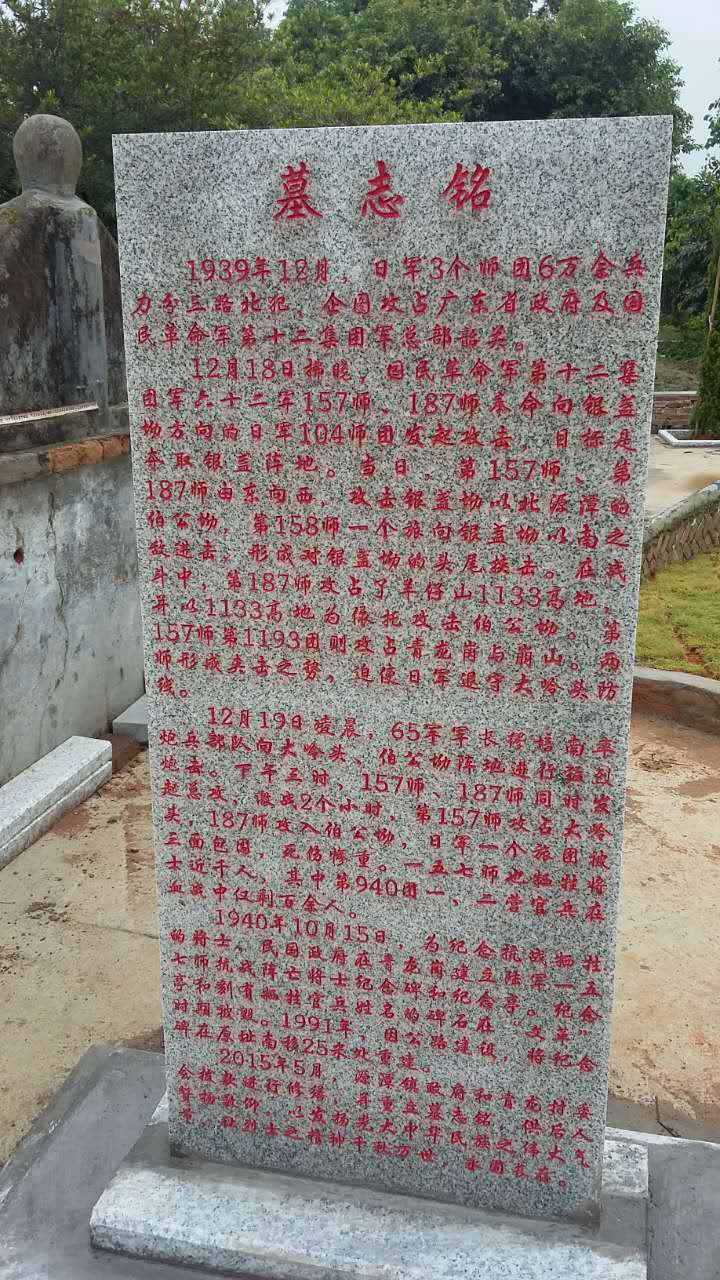 墓志铭
1939年12月，日军3个师团6万余兵
力分三路北犯，企图攻占广东省政府及国
民革命军第十二集团军总部韶关。
12月18日拂晓，国民革命军第十二集
团军六十二军157师、187师奉命向银盏
坳方向的日军104师团发起攻击，目标是
夺取银盏阵地。当日，第157师、第
187师由东向西，攻击银盏坳以北源潭的
伯公坳，第158师一个旅向银盏坳以南之
敌进击，形成对银盏坳的头尾挟击。在战
斗中，第187师攻占了羊仔山1133高地，
并以1133高地为依托攻击伯公坳。第
157师第1193团则攻占青龙岗与崩山。两
师形成夹击之势，迫使日军退守大岭头防
线。
12月19日凌晨，65军军长缪培南率
炮兵部队向大岭头、伯公坳阵地进行猛烈
炮击。下午三时，157师、187师同时发
起总攻，激战2个小时，第157师攻占大岭
头，187师攻入伯公坳，日军一个旅团被
三面包围，死伤惨重。一五七师也牺牲将
士近千人，其中第940团一、二营官兵在
血战中仅剩百余人。
1940年10月15日，为纪念抗战牺牲
的将士，民国政府在青龙岗建立陆军一五
七师抗战阵亡将士纪念碑和纪念亭。纪念
亭和刻有牺牲官兵姓名的碑石在“文革”
时期被毁。1991年，因公路建设，将纪念
碑在原址南移25米处重建。
2015年5月，源潭镇政府和青龙村委
会拨款进行修缮，并重立墓志铭，供后人
瞻仰，以发扬光大中华民族之伟大